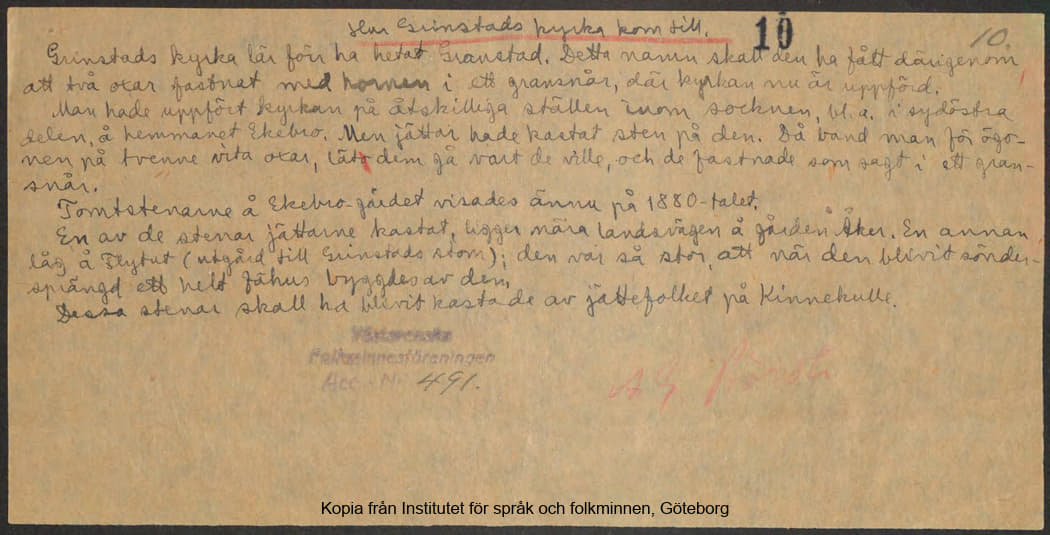 Hur Grinstads kyrka kom till.
10
10.
Grinstads kyrka lär förr ha hetat Granstad. Detta namn skall den ha fått därigenom
att två oxar fastnat med hornen i ett gransnår, där kyrkan nu är uppförd.
Man hade uppfört kyrkan på åtskilliga ställen inom socknen, bl.a. i sydöstra
delen, å hemmanet Ekebro. Men jättar hade kastat sten på den. Då band man för ögo-
nen på tvenne vita oxar, lät dem gå vart de ville, och de fastnade som sagt i ett gran-
snår.
Tomtstenarne å Ekebro-gärdet visades ännu på 1880-talet.
En av de stenar jättarne kastat, ligger nära landsvägen å gården Åker. En annan
låg å Flytut (utgård till Grinstads stom); den var så stor, att när den blivit sönder-
sprängd ett helt fähus byggdes av dem.
Dessa stenar skall ha blivit kastade av jättefolket på Kinnekulle.
Västsvenska
Folkminnesföreningen
Acc. Nr 491.
A G
Kopia från Institutet för språk och folkminnen, Göteborg